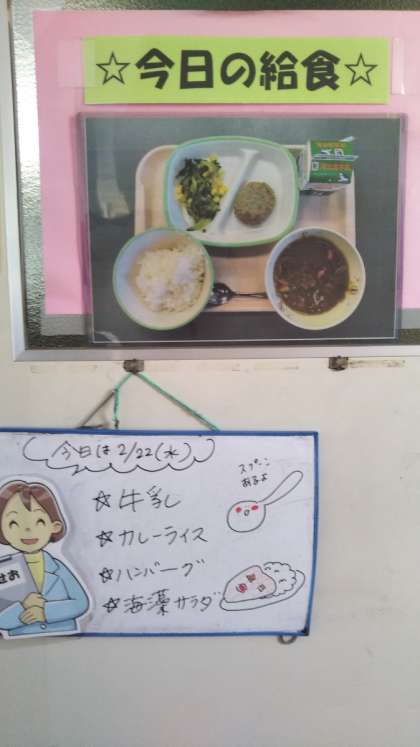 ☆今日の給食☆
今日は2/22(水)
スプーン
あるよ
☆牛乳
☆カレーライス
☆ハンバーグ
☆海藻サラダ